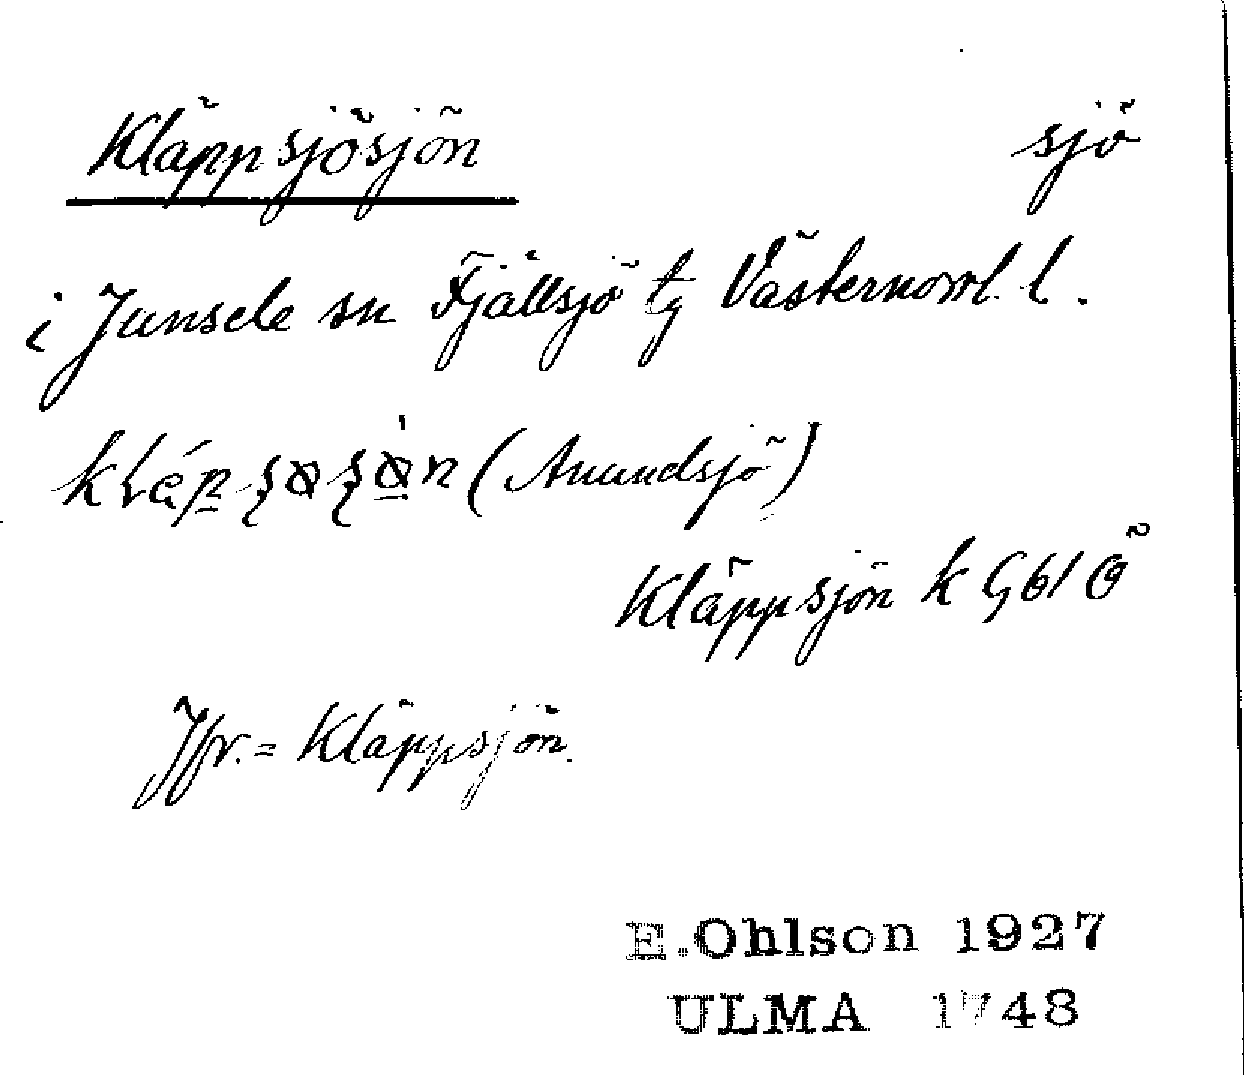 Kläppsjösjön sjö
i Junsele sn Fjällsjö tg Västernorrl. l.
(Anundsjö)
Kläppsjön k G61 Ö
Jfr. = Kläppsjön.
E.Ohlson 1927
ULMA 1748